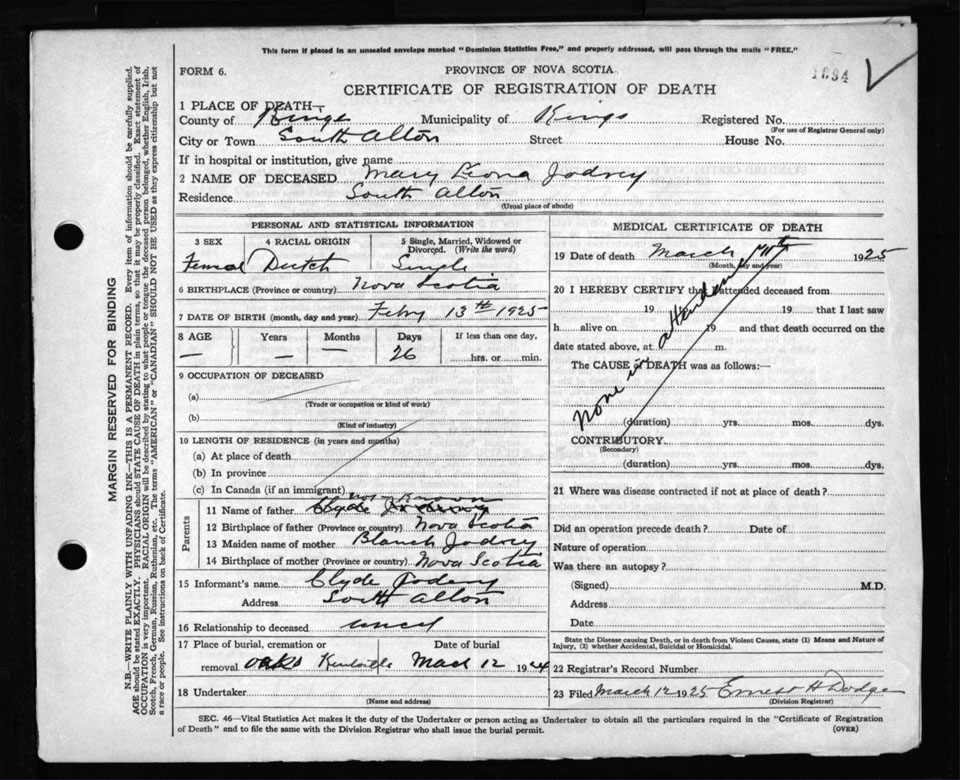 This form if placed in an unsealed envelope marked "Dominion Statistics Free," and properly addressed, will pass through the mails "FREE."
FORM 6.
PROVINCE OF NOVA SCOTIA
1094
CERTIFICATE OF REGISTRATION OF DEATH
1 PLACE OF DEATH—
County of Kings Municipality of Kings Registered No.
(For use of Registrar General only)
City or Town South Alton Street House No.
If in hospital or institution, give name
2 NAME OF DECEASED Mary Leona Jodrey
Residence South Alton
(Usual place of abode)
PERSONAL AND STATISTICAL INFORMATION
3 SEX 4 RACIAL ORIGIN 5 Single, Married, Widowed or Divorced. (Write the word)
Femal Dutch Single
6 BIRTHPLACE (Province or country) Nova Scotia
7 DATE OF BIRTH (month, day and year) Feby 13th 1925
8 AGE Years Months Days If less than one day,
— — — 26 hrs. or min.
9 OCCUPATION OF DECEASED
(a)
(Trade or occupation or kind of work)
(b)
(Kind of industry)
10 LENGTH OF RESIDENCE (in years and months)
(a) At place of death
(b) In province
(c) In Canada (if an immigrant)
Parents
not Known
11 Name of father Clyde Jodrey
12 Birthplace of father (Province or country) Nova Scotia
13 Maiden name of mother Blanch Jodrey
14 Birthplace of mother (Province or country) Nova Scotia
15 Informant's name Clyde Jodery
Address South Alton
16 Relationship to deceased uncl
17 Place of burial, cremation or removal Date of burial
oaks Kentville Mach 12 1924
18 Undertaker
(Name and address)
MEDICAL CERTIFICATE OF DEATH
19 Date of death March 1925
(Month, day and year)
20 I HEREBY CERTIFY that I attended deceased from
19 to 19 that I last saw
h alive on 19 and that death occurred on the
date stated above, at m.
The CAUSE of DEATH was as follows:—
None in attendance
(duration) yrs. mos. dys.
CONTRIBUTORY
(Secondary)
(duration) yrs. mos. dys.
21 Where was disease contracted if not at place of death?
Did an operation precede death? Date of
Nature of operation
Was there an autopsy?
(Signed) M.D.
Address
Date
State the Disease causing Death, or in death from Violent Causes, state (1) Means and Nature of
Injury, (2) whether Accidental, Suicidal or Homicidal.
22 Registrar's Record Number
23 Filed March 12 1925 Ernest H Dodge
(Division Registrar)
SEC. 46—Vital Statistics Act makes it the duty of the Undertaker or person acting as Undertaker to obtain all the particulars required in the "Certificate of Registration
of Death" and to file the same with the Division Registrar who shall issue the burial permit.
(OVER)
MARGIN RESERVED FOR BINDING
N.B.—WRITE PLAINLY WITH UNFADING INK—THIS IS A PERMANENT RECORD. Every item of information should be carefully supplied.
AGE should be stated EXACTLY. PHYSICIANS should STATE CAUSE OF DEATH in plain terms, so that it may be properly classified. Exact statement of
OCCUPATION is very important. RACIAL ORIGIN will be described by stating to what people or tongue the deceased person belonged, whether English, Irish,
Scotch, French, German, Russian, Ruthenian, etc. The terms "AMERICAN" or "CANADIAN" SHOULD NOT BE USED as they express citizenship but not
a race or people. See instructions on back of Certificate.